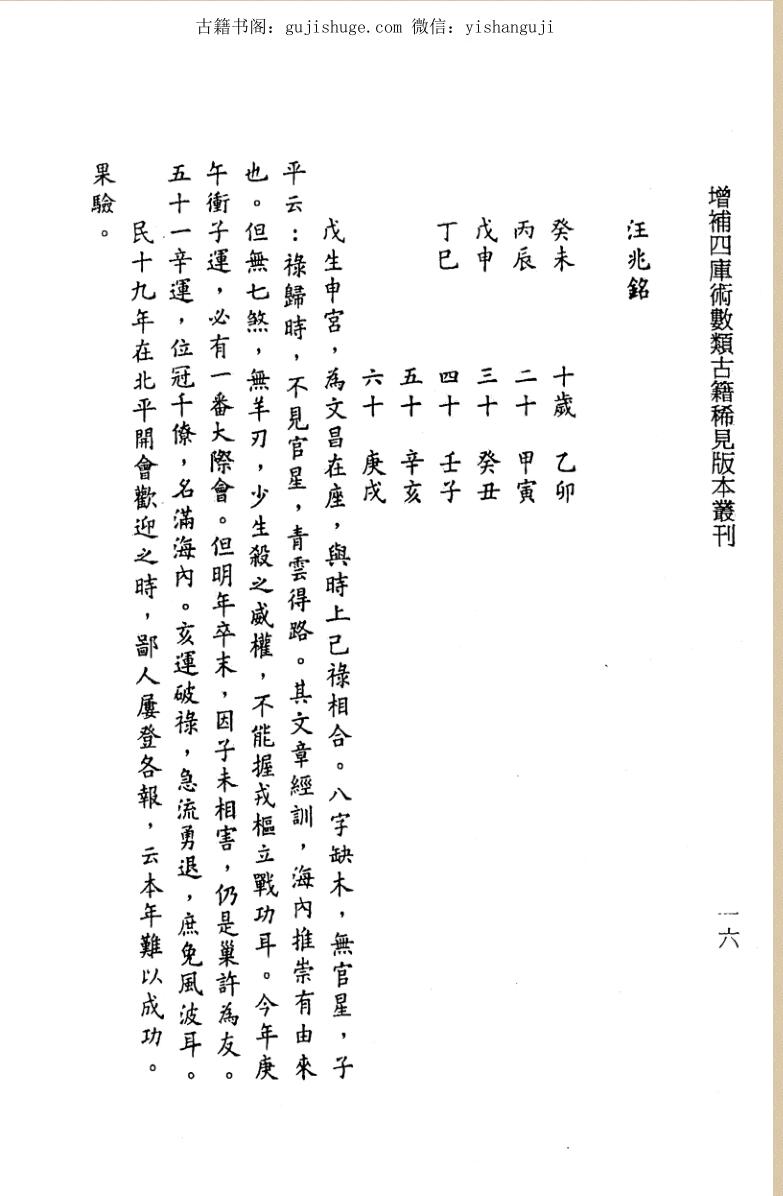 古籍书阁：gujishuge.com 微信：yishanguji
增補四庫術數類古籍稀見版本叢刊
一六
汪兆銘
癸未　十歲　乙卯
丙辰　二十　甲寅
戊申　三十　癸丑
丁巳　四十　壬子
五十　辛亥
六十　庚戌
戊生申宮，為文昌在座，與時上己祿相合。八字缺木，無官星，子
平云：祿歸時，不見官星，青雲得路。其文章經訓，海內推崇有由來
也。但無七煞，無羊刃，少生殺之威權，不能握戎樞立戰功耳。今年庚
午衝子運，必有一番大際會。但明年卒末，因子未相害，仍是巢許為友。
五十一辛運，位冠千僚，名滿海內。亥運破祿，急流勇退，庶免風波耳。
民十九年在北平開會歡迎之時，鄙人屢登各報，云本年難以成功。
果驗。